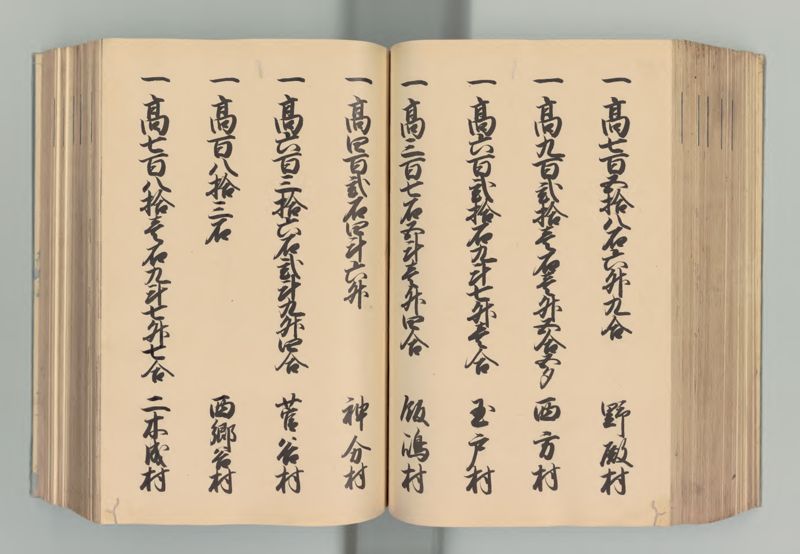 一 高七百五拾八石六升九合 野殿村
一 高九百弐拾壱石壱升五合五夕 西方村
一 高六百弐拾石九斗七升壱合 玉戸村
一 高三百七石五斗壱升四合 飯嶋村
一 高四百弐石四斗六升 神分村
一 高六百三拾六石弐斗九升四合 菅谷村
一 高百八拾三石 西郷谷村
一 高七百八拾壱石九斗七升七合 二木成村